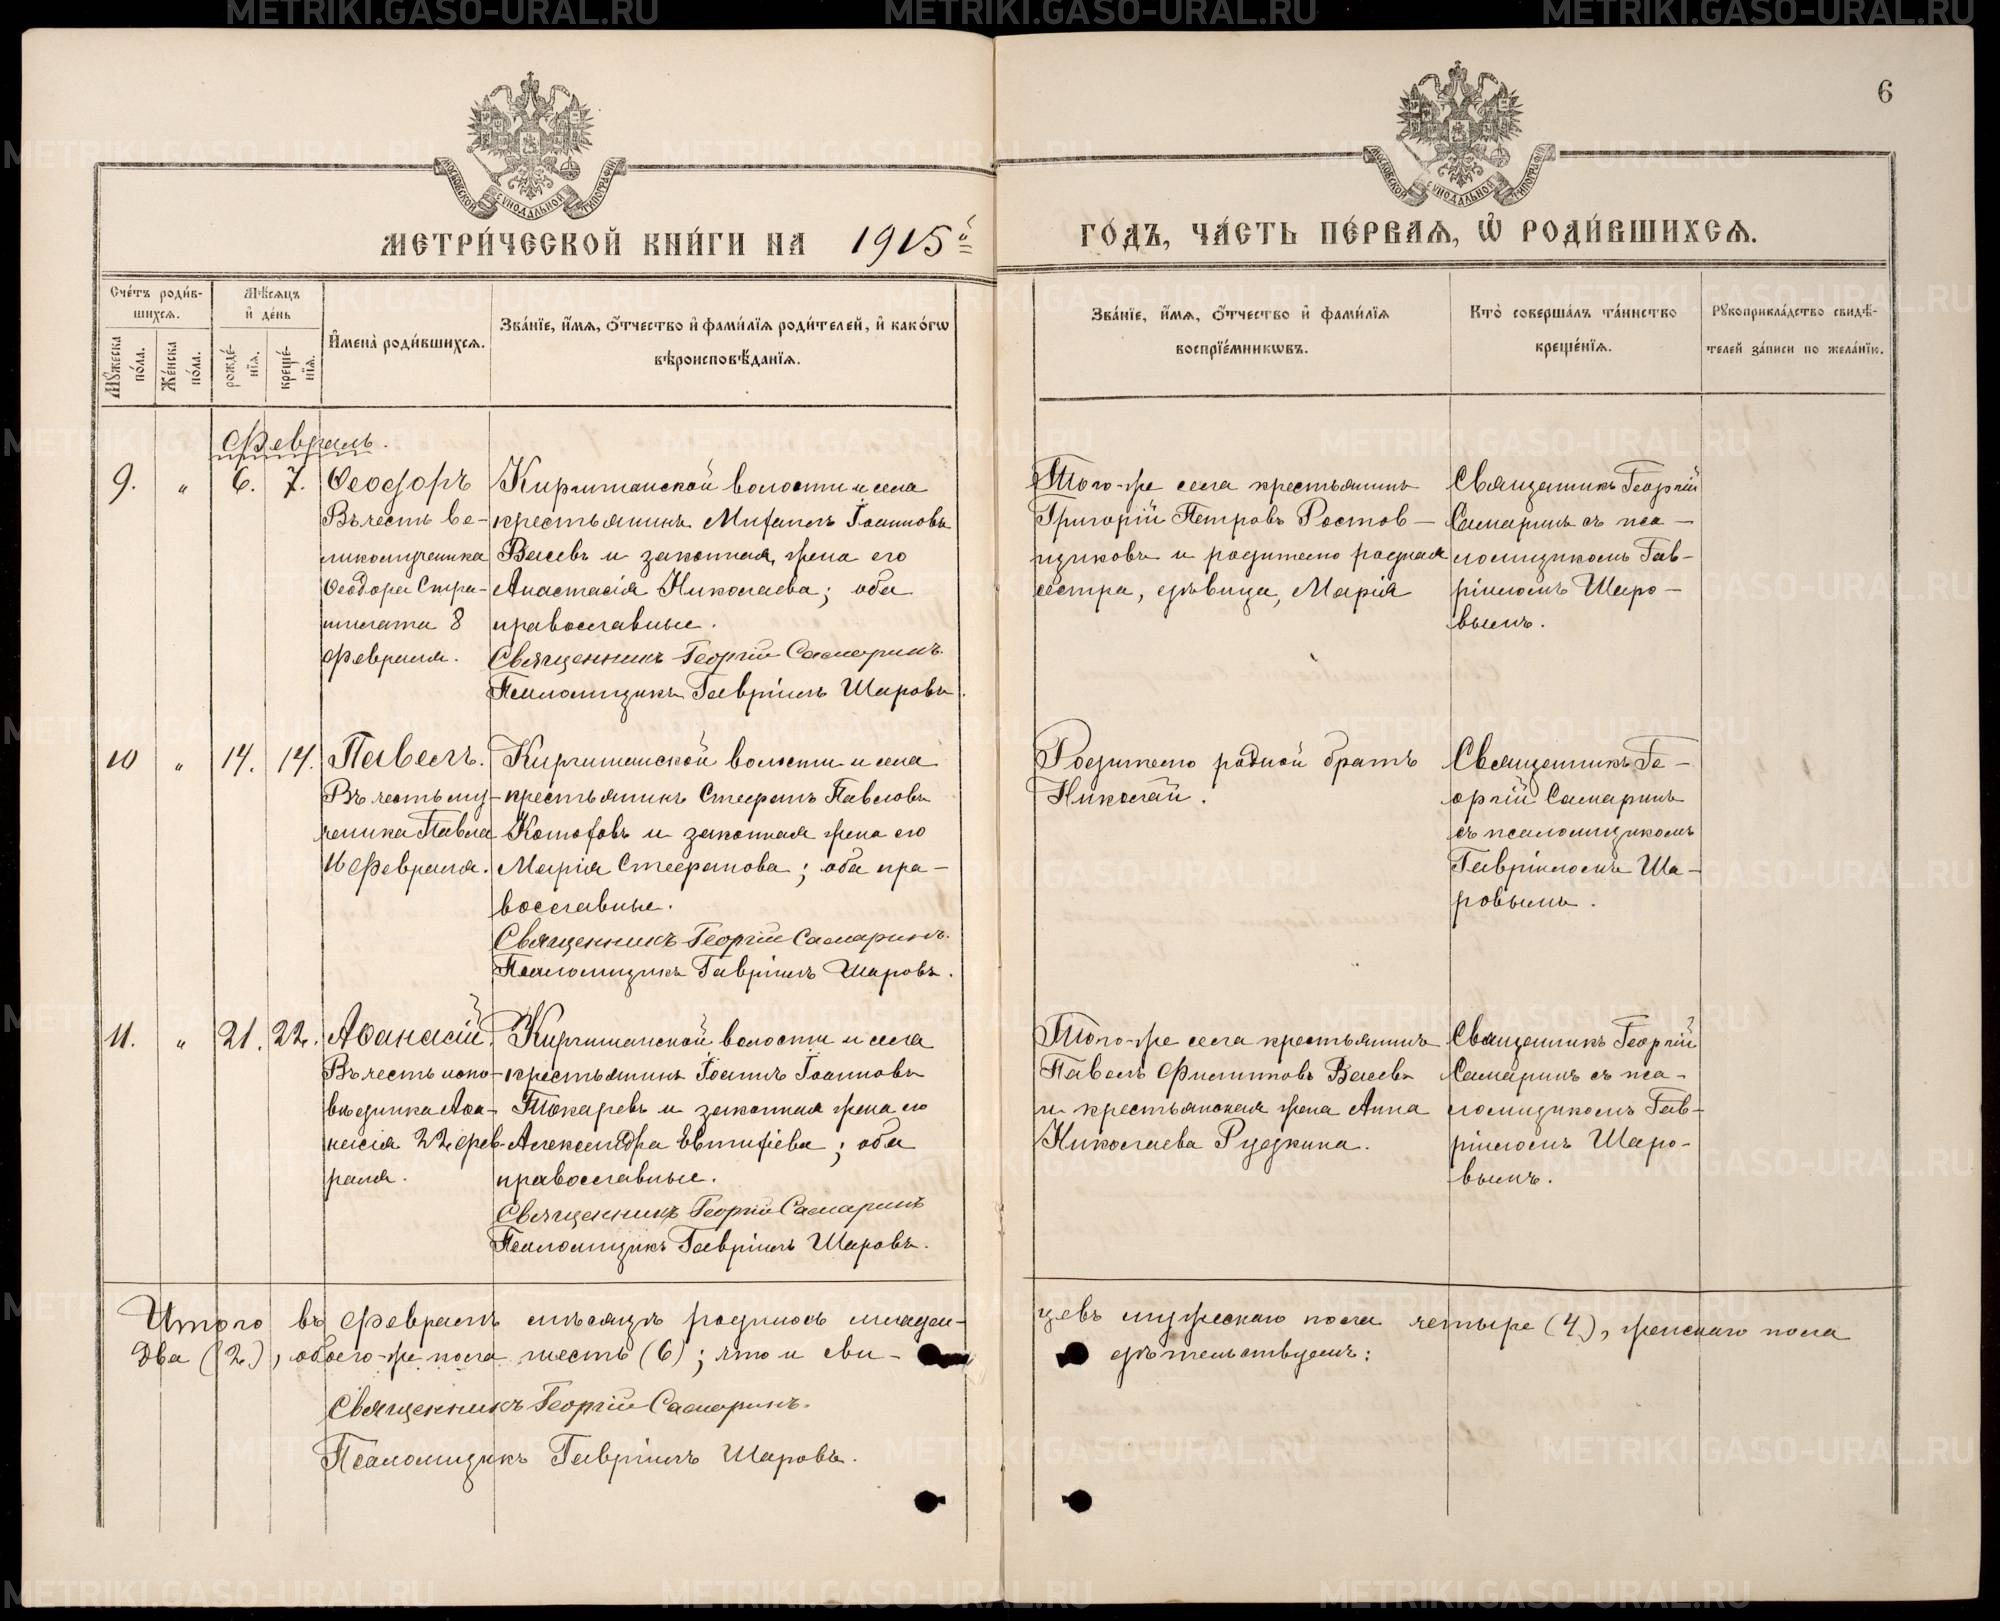 6
МОСКОВСКОЙ СѴНОДАЛЬНОЙ ТИПОГРАФІИ
МОСКОВСКОЙ СѴНОДАЛЬНОЙ ТИПОГРАФІИ
МЕТРИ́ЧЕСКОЙ КНИ́ГИ НА 1915й
ГО́ДЪ, ЧА́СТЬ ПЕ́РВАѦ, Ѡ РОДИ́ВШИХСѦ.
Сче́тъ роди́в-
шихсѧ.
Мꙋжеска по́ла.
Же́нска по́ла.
Мѣ́сѧцъ
и де́нь
рожде́-
нїѧ.
креще́-
нїѧ.
Имена̀ роди́вшихсѧ.
Зва́нїе, и́мѧ, ѻ́тчество и фами́лїѧ роди́телей, и како́гѡ
вѣроисповѣ́данїѧ.
Зва́нїе, и́мѧ, ѻ́тчество и фами́лїѧ
воспрїе́мникѡвъ.
Кто̀ соверша́лъ та́инство
креще́нїѧ.
Рꙋкоприкла́дство свидѣ́-
телей за́писи по жела́нїю.
Февраль.
9. „ 6. 7. Ѳеодоръ
Въ честь ве-
ликомученика
Ѳеодора Стра-
тилата 8
февраля.
Киргишанской волости и села
крестьянинъ Михаилъ Іоанновъ
Васевъ и законная жена его
Анастасія Николаева; оба
православные.
Священникъ Георгій Самаринъ.
Псаломщикъ Гавріилъ Шаровъ.
Того-же села крестьянинъ
Григорій Петровъ Ростов-
щиковъ и родителю родная
сестра, дѣвица, Марія
Священникъ Георгій
Самаринъ съ пса-
ломщикомъ Гав-
ріиломъ Шаро-
вымъ.
10 „ 14. 14. Павелъ.
Въ честь му-
ченика Павла
16 февраля.
Киргишанской волости и села
крестьянинъ Стефанъ Павловъ
Котовъ и законная жена его
Марія Стефанова; оба пра-
вославные.
Священникъ Георгій Самаринъ.
Псаломщикъ Гавріилъ Шаровъ.
Родителю родной братъ
Николай.
Священникъ Ге-
оргій Самаринъ
съ псаломщикомъ
Гавріиломъ Ша-
ровымъ.
11. „ 21. 22. Аѳанасій.
Въ честь испо-
вѣдника Аѳа-
насія 22 фев-
раля.
Киргишанской волости и села
крестьянинъ Іоаннъ Іоанновъ
Токаревъ и законная жена его
Александра Евтихіева; оба
православные.
Священникъ Георгій Самаринъ
Псаломщикъ Гавріилъ Шаровъ.
Того-же села крестьянинъ
Павелъ Филипповъ Васевъ
и крестьянская жена Анна
Николаева Рудкина.
Священникъ Георгій
Самаринъ съ пса-
ломщикомъ Гав-
ріиломъ Шаро-
вымъ.
Итого въ февралѣ мѣсяцѣ родилось младен-
цевъ мужескаго пола четыре (4), женскаго пола
два (2), обоего-же пола шесть (6); что и сви-
дѣтельствуемъ:
Священникъ Георгій Самаринъ.
Псаломщикъ Гавріилъ Шаровъ.
METRIKI.GASO-URAL.RU